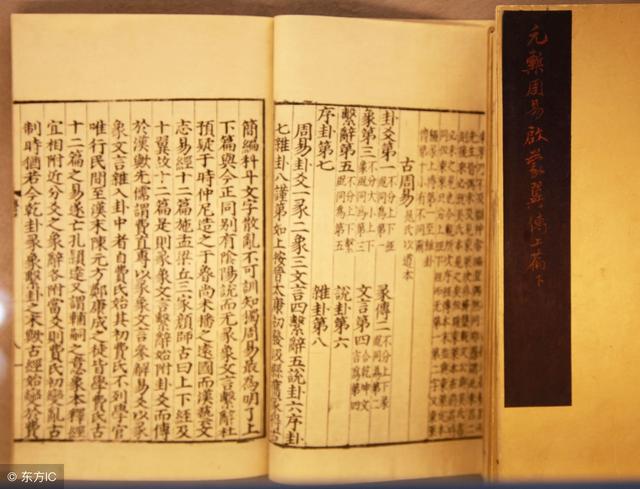 元槧周易啟蒙翼傳上篇下
古周易 晁氏以道本
卦爻第一 不分上下經 彖傳二 不分上下彖
象第三 不分大小上下 文言第四 合乾坤文
繫辭第五 不分上下繫 說卦第六
序卦第七 雜卦第八
周易卦爻一彖二象三文言四繫辭五說卦六序卦
七雜卦八謹第如上按晉太康初發汲縣舊冢得古
簡編科斗文字散亂不可訓知獨周易最為明了上
下篇與今正同別有陰陽說而无彖象文言繫辭杜
預疑于時仲尼造之于魯尚未播之遠國而漢藝文
志易經十二篇施孟梁丘三家顏師古曰上下經及
十翼故十二篇是則彖象文言繫辭始附卦爻而傳
於漢歟先儒謂費直專以彖象文言參解易爻以彖
象文言雜入卦中者自費氏始其初費氏不列學官
唯行民間至漢末陳元方鄭康成之徒皆學費氏古
十二篇之易遂亡孔穎達又謂輔嗣之意象本釋經
宜相附近分爻之象辭各附當爻則費氏初變亂古
制時猶若今乾卦彖象繫卦之末歟古經始變於費
© 东方IC